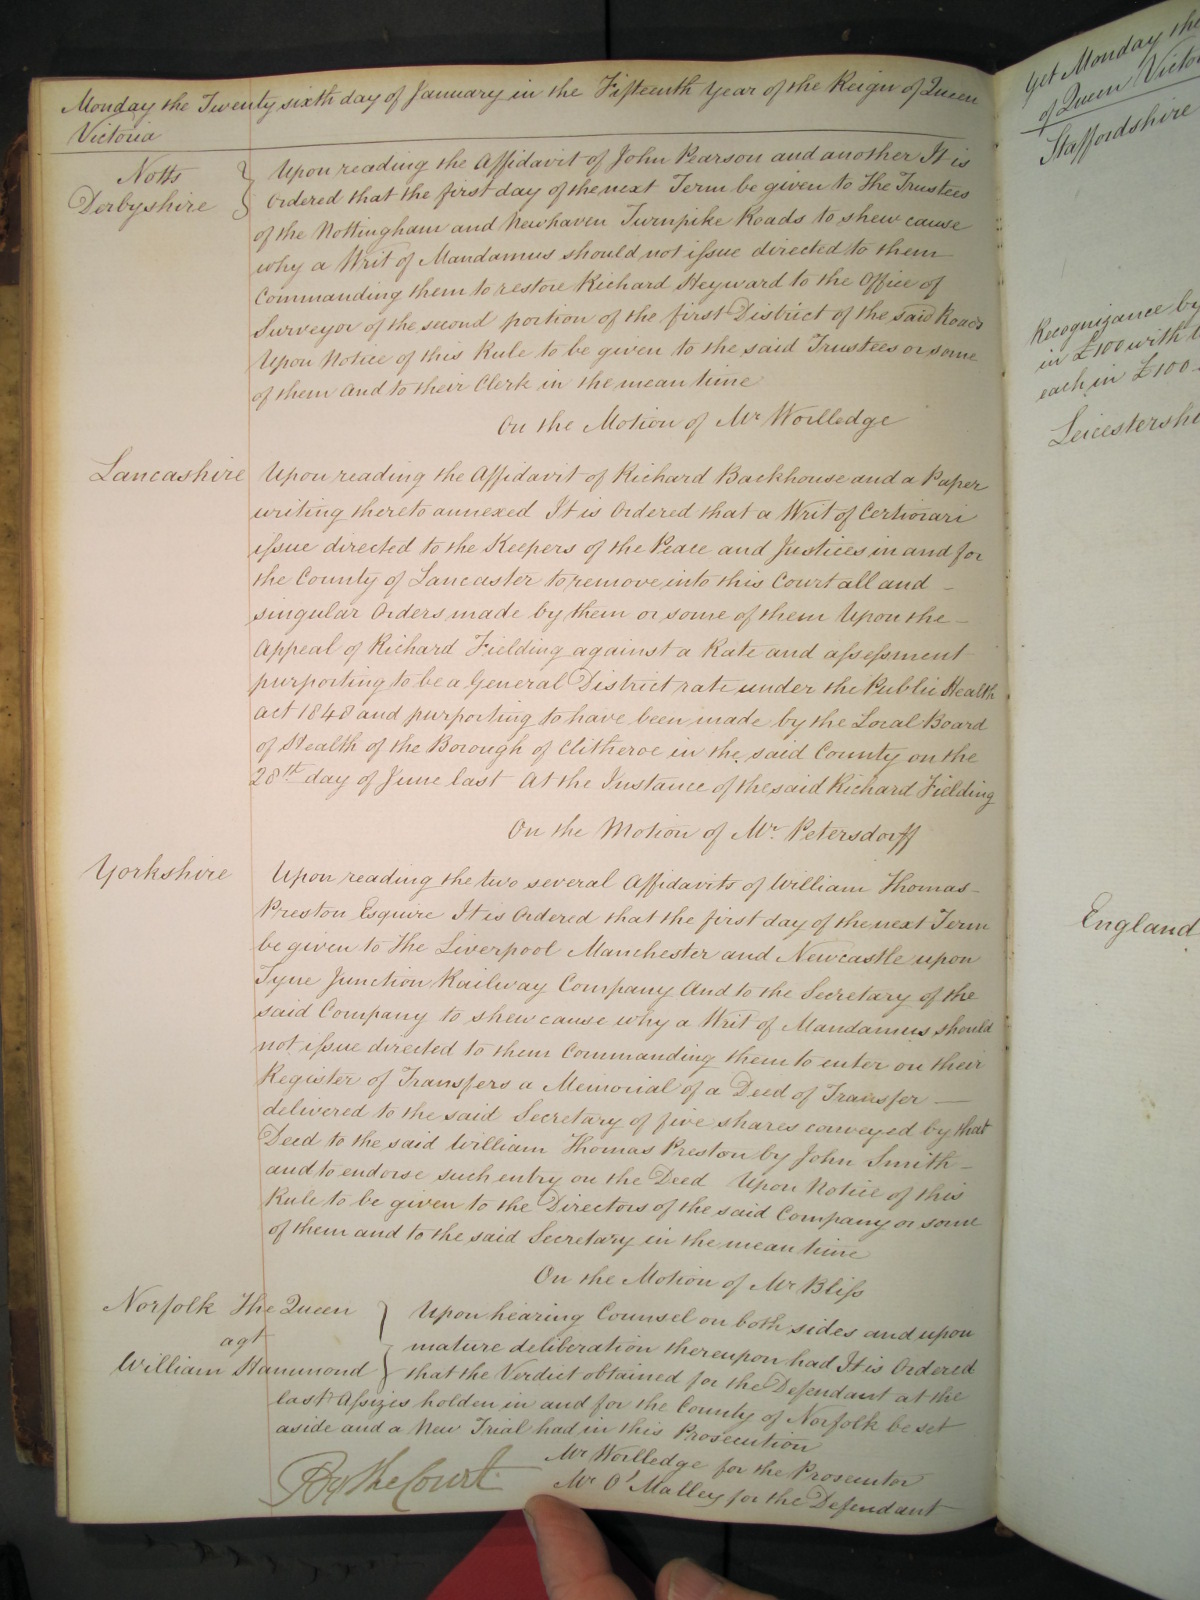 Monday the Twenty sixth day of January in the Fifteenth Year of the Reign of Queen
Victoria
Notts
Derbyshire
Upon reading the Affidavit of John Pearson and another It is
Ordered that the first day of the next Term be given to The Trustees
of the Nottingham and Newhaven Turnpike Roads to shew cause
why a Writ of Mandamus should not issue directed to them
Commanding them to restore Richard Heyward to the Office of
Surveyor of the second portion of the first District of the said Roads
Upon Notice of this Rule to be given to the said Trustees or some
of them And to their Clerk in the mean time
On the Motion of Mr Worlledge
Lancashire
Upon reading the Affidavit of Richard Backhouse and a Paper
writing thereto annexed It is Ordered that a Writ of Certiorari
issue directed to the Keepers of the Peace and Justices in and for
the County of Lancaster to remove into this Court all and
singular Orders made by them or some of them Upon the
Appeal of Richard Fielding against a Rate and assessment
purporting to be a General District rate under the Public Health
act 1848 and purporting to have been made by the Local Board
of Health of the Borough of Clitheroe in the said County on the
28th day of June last At the Instance of the said Richard Fielding
On the Motion of Mr. Petersdorff
Yorkshire
Upon reading the two several Affidavits of William Thomas
Preston Esquire It is Ordered that the first day of the next Term
be given to The Liverpool Manchester and Newcastle upon
Tyne Junction Railway Company And to the Secretary of the
said Company to shew cause why a Writ of Mandamus should
not issue directed to them Commanding them to enter on their
Register of Transfers a Memorial of a Deed of Transfer
delivered to the said Secretary of five shares conveyed by that
Deed to the said William Thomas Preston by John Smith
and to endorse such entry on the Deed Upon Notice of this
Rule to be given to the Directors of the said Company or some
of them and to the said Secretary in the mean time
On the Motion of Mr Bliss
Norfolk The Queen
agt
William Hammond
Upon hearing Counsel on both sides and upon
mature deliberation thereupon had It is Ordered
that the Verdict obtained for the Defendant at the
last Assizes holden in and for the County of Norfolk be set
aside and a New Trial had in this Prosecution
Mr Worlledge for the Prosecutor
Mr O'Malley for the Defendant
By the Court
Yet Monday the
of Queen Victo
Staffordshire
Recognizance by
in £100 with
each in £100
Leicestershi
England